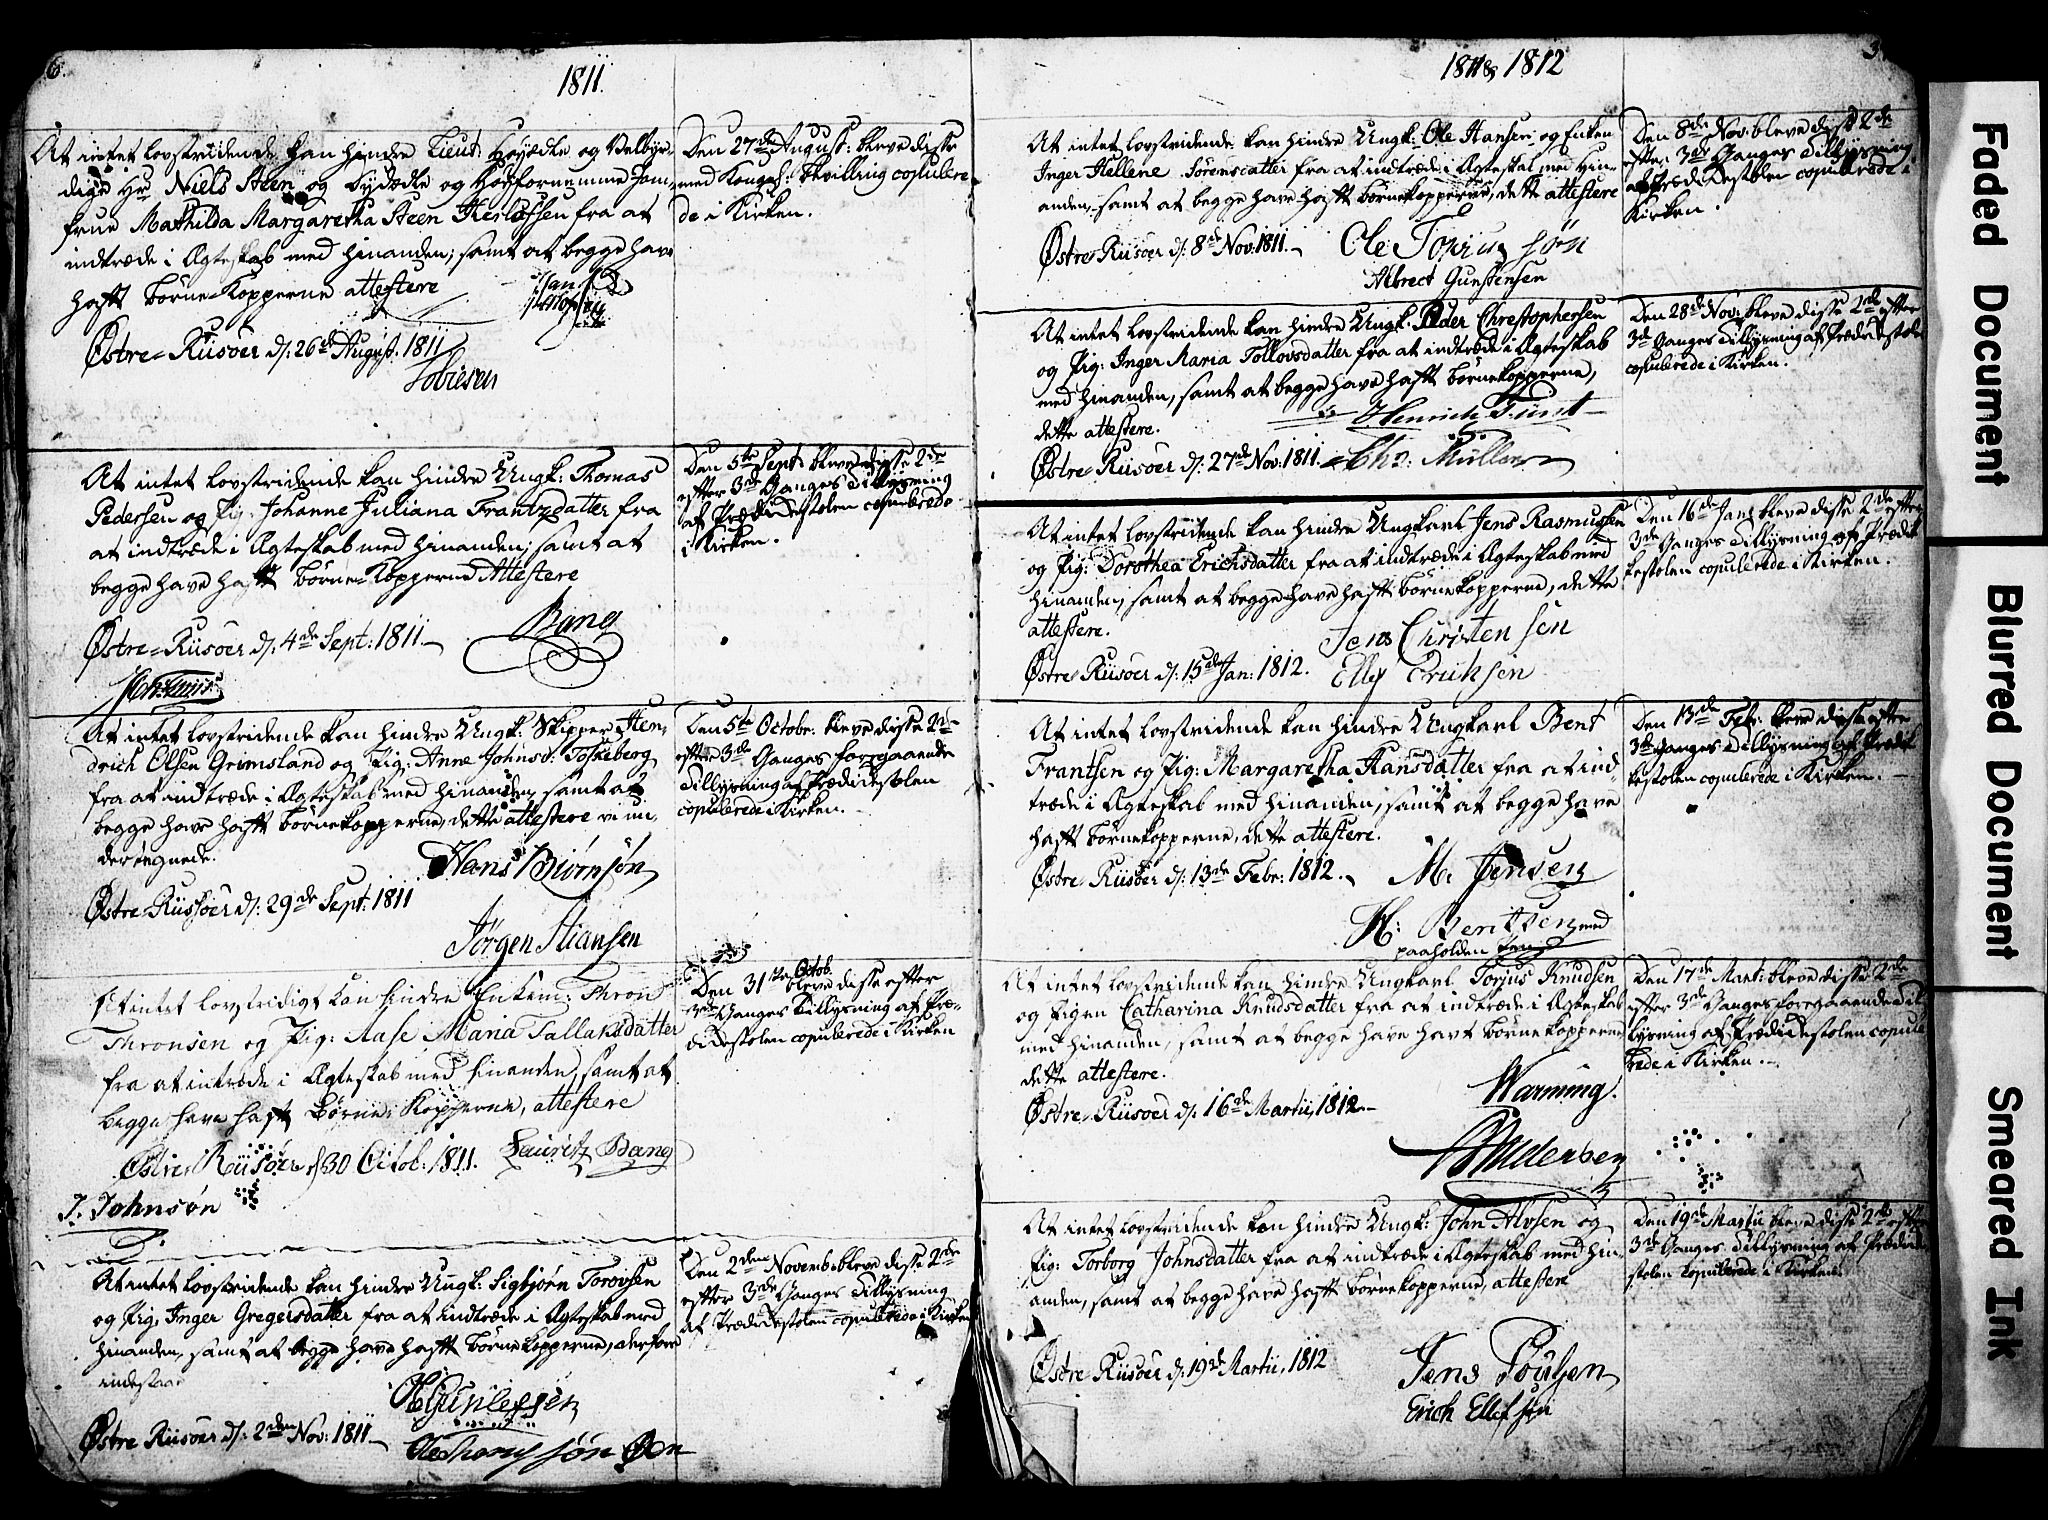 6.
1811.
At intet lovstridende kan hindre Lieut: Høyædle og Velbyr-
dige Hr Niels Steen og Dydædle og Høyfornemme Jom-
frue Mathilda Margaretha Steen fra at
indtræde i Ægteskab med hinanden, samt at begge have
haft Børne-Kopperne attestere
Østre-Riisøer d: 26de August. 1811
Tobiesen
Den 27de August: bleve disse
med Kongel: Bevilling copulere
de i Kirken.
At intet lovstridende kan hindre Ungk: Thomas
Pedersen og Pig: Johanne Juliana Frantzdatter fra
at indtræde i Ægteskab med hinanden, samt at
begge have haft Børne-Kopperne Attestere
Østre-Riisøer d: 4de Sept: 1811.
Bang
Den 5te Sept: bleve disse 2de
efter 3de Ganges Tillysning
af Prædikestolen copulerede
i Kirken.
At intet lovstridende kan hindre Ungk: Skipper Hen-
drich Olsen Grimsland og Pig: Anne Johnsd: Toskeberg
fra at indtræde i Ægteskab med hinanden, samt at
begge have haft Børnekopperne, dette attestere vi un-
dertegnede.
Østre-Riisøer d: 29de Sept: 1811
Hans Biørnsøn
Jørgen Stiansen
Den 5te Octobr: bleve disse 2de
efter 3de Ganges forregaaende
Tillysning af Prædikestolen
copulerede i Kirken.
At intet lovstridigt kan hindre Enkem: Thron
Thronsen og Pig: Aase Maria Tallaksdatter
fra at intræde i Ægteskab med hinanden, samt at
begge have haft Børne-Kopperne, attestere
Østre Riisøer d 30 Octob: 1811. Lauritz Bang
J. Johnsøn
Den 31te Octob. bleve disse efter
3de Ganges Tillysning af Præ-
dikestolen copulerede i Kirken
At intet lovstridende kan hindre Ungk: Sigbjørn Torovsen
og Pig. Inger Gregersdatter fra at indtræde i Ægteskab med
hinanden, samt at begge have haft Børnekopperne, derfore
indestaar
Østre Riisøer d: 2den Nov: 1811
Den 2den Novemb: bleve disse 2de
efter 3de Ganges Tillysning
af Prædikestolen copulerede i Kirken
1811 & 1812
At intet lovstridende kan hindre Ungk: Ole Hansen og Enken
Inger Hellene Sørensdatter fra at indtræde i Ægteskab med hin-
anden, samt at begge have haft børnekopperne, dette attestere
Østre Riisøer d: 8de Nov: 1811.
Albrect Gunstensen
Den 8de Nov: bleve disse 2de
efter 3de Ganges Tillysning
af Prædikestolen copulerede i
Kirken.
At intet lovstridende kan hindre Ungk. Peder Christophersen
og Pig: Inger Maria Tollovsdatter fra at indtræde i Ægteskab
med hinanden, samt at begge have haft børnekopperne,
dette attestere.
Henrich Fürst
Østre Riisøer d: 27de Nov: 1811.
Chr: Müller
Den 28de Nov: bleve disse 2de efter
3de Ganges Tillysning af Prædikestolen
copulerede i Kirken.
At intet lovstridende kan hindre Ungkarl Jens Rasmussen
og Pig: Dorothea Erichsdatter fra at indtræde i Ægteskab med
hinanden, samt at begge have haft børnekopperne, dette
attestere.
Jens Christensen
Østre Riisøer d: 15de Jan: 1812.
Ellef Eriksen
Den 16de Jan: bleve disse 2de efter
3de Ganges Tillysning af Prædi
kestolen copulerede i Kirken.
At intet lovstridende kan hindre Ungkarl Bent
Frantsen og Pig: Margaretha Hansdatter fra at ind-
træde i Ægteskab med hinanden, samt at begge have
haft børnekopperne, dette attestere.
Østre-Riisøer d: 13de Febr: 1812.
M. Jensen
H: Bentsen med
paaholden Pen
Den 13de Febr: bleve disse efter
3de Ganges Tillysning af Prædi
kestolen copulerede i Kirken.
At intet lovstridende kan hindre Ungkarl Torjus Knudsen
og Pigen Catharina Knudsdatter fra at indtræde i Ægteskab
med hinanden, samt at begge have havt børnekopperne,
dette attestere.
Warming.
Østre-Riisøer d: 16de Martii, 1812.
Den 17de Mart: bleve disse 2de
efter 3de Ganges foregaaende Til
lysning af Prædikestolen copule
rede i Kirken.
At intet lovstridende kan hindre Ungk: John Alvsen og
Pig: Torborg Johnsdatter fra at indtræde i Ægteskab med hin-
anden, samt at begge have haft børnekopperne, attestere
Østre Riisøer d: 19de Martii, 1812
Jens Poulsen
Erich Ellefsøn
Den 19de Martii bleve disse 2de efter
3de Ganges Tillysning af Prædike
stolen copulerede i Kirken.
Faded Document
Blurred Document
Smeared Ink